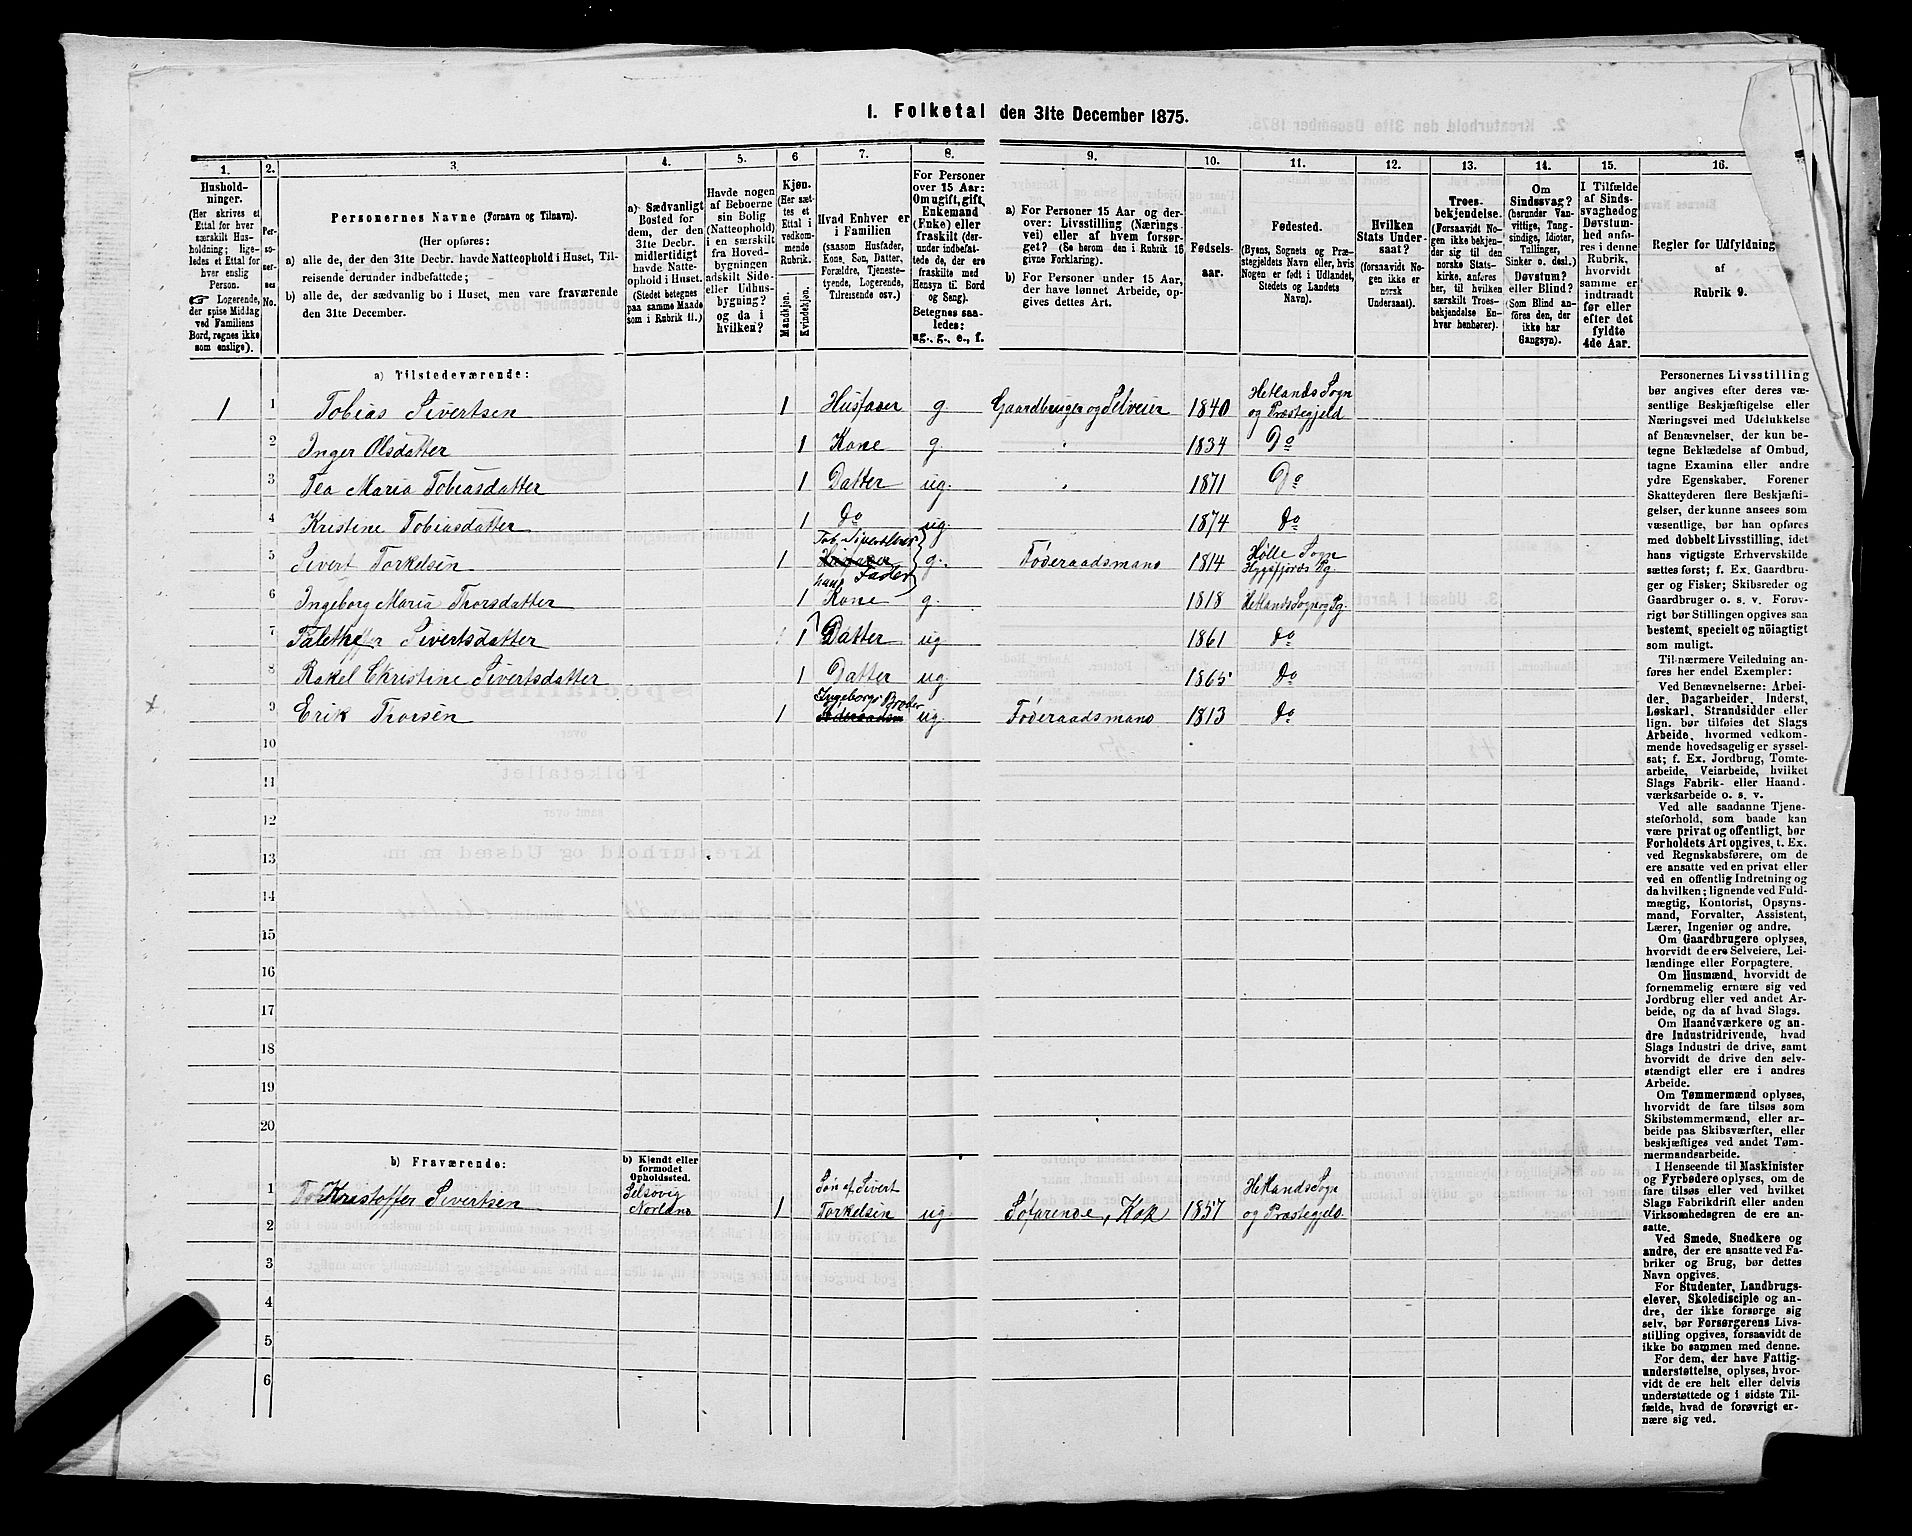 1. Folketal den 31te December 1875.
1. 2. 3. 4. 5. 6 7. 8. 9. 10. 11. 12. 13. 14. 15. 16.
Hushold-
ninger.
(Her skrives et
Ettal for hver
særskilt Hus-
holdning; lige-
ledes et Ettal
for hver enslig
Person.
☞ Logerende,
der spise Middag
ved Familiens
Bord, regnes ikke
som enslige).
Per-
so-
ner-
nes
No.
Personernes Navne (Fornavn og Tilnavn).
(Her opføres:
a) alle de, der den 31te Decbr. havde Natteophold i Huset, Til-
reisende derunder indbefattede;
b) alle de, der sædvanlig bo i Huset, men vare fraværende
den 31te December.
a) Sædvanligt
Bosted for
dem, der den
31te Decbr.
midlertidigt
havde Natte-
ophold i Huset.
(Stedet betegnes
paa samme Maade
som i Rubrik 11.)
Havde nogen
af Beboerne
sin Bolig
(Natteophold)
i en særskilt
fra Hoved-
bygningen
adskilt Side-
eller Udhus-
bygning?
og da i
hvilken?
Kjøn.
(Her sæt-
tes et
Ettal i
vedkom-
mende
Rubrik.
Mandkjøn.
Kvindekjøn.
Hvad Enhver er
i Familien
(saasom Husfader,
Kone, Søn, Datter,
Forældre, Tjeneste-
tyende, Logerende,
Tilreisende osv.)
For Personer
over 15 Aar:
Om ugift, gift,
Enkemand
(Enke) eller
fraskilt (der-
under indbefat-
tede de, der ere
fraskilte med
Hensyn til Bord
og Seng).
Betegnes saa-
ledes:
ug., g., e., f.
a) For Personer 15 Aar og der-
over: Livsstilling (Nærings-
vei) eller af hvem forsør-
get? (Se herom den i Rubrik 16
givne Forklaring).
b) For Personer under 15 Aar,
der have lønnet Arbeide, op-
gives dettes Art.
Fødsels-
aar.
Fødested.
(Byens, Sognets og Præ-
stegjeldets Navn eller, hvis
Nogen er født i Udlandet,
Stedets og Landets
Navn).
Hvilken
Stats Under-
saat?
(forsaavidt No-
gen ikke er
norsk
Undersaat).
Troes-
bekjendelse.
(Forsaavidt No-
gen ikke bekjen-
der sig til den
norske Stats-
kirke, anføres
her, til hvilken
særskilt Troes-
bekjendelse En-
hver henhører).
Om
Sindssvag?
(herunder Van-
vittige, Tung-
sindige, Idioter,
Tullinger,
Sinker o. desl.)
Døvstum?
eller Blind?
(Som Blind an-
føres den, der
ikke har
Gangsyn).
I Tilfælde
af Sinds-
svaghed og
Døvstum-
hed anfø-
res i denne
Rubrik,
hvorvidt
samme er
indtraadt
før eller
efter det
fyldte
4de Aar.
Regler for Udfyldning
af
Rubrik 9.
a) Tilstedeværende:
1 1 Tobias Sivertsen 1 Husfader g Gaardbruger og Selveier 1840 Hetlands Sogn
og Præstegjeld
2 Inger Olsdatter 1 Kone g. " 1834 Do
3 Tea Maria Tobiasdatter 1 Datter ug. " 1871 Do
4 Kristine Tobiasdatter 1 do ug. 1874 do
5 Sivert Torkelsen 1 Tob. Sivertsens
Husfader
hans Fader g. Føderaadsmand 1814 Hølle Sogn
Høgsfjords Pg.
6 Ingeborg Maria Thorsdatter 1 Kone g. 1818 Hetlands Sogn og Pg.
7 Sivertsdatter 1 Datter ug 1861 do
8 Rakel Christine Sivertsdatter 1 Datter ug 1865 do
9 Erik Thorsen 1 Ingeborgs Broder
Føderaadsm ug. Føderaadsmand 1813 do
10
11
12
13
14
15
16
17
18
19
20
b) Fraværende:
b) Kjendt eller
formodet
Opholdssted.
1 Kristoffer Sivertsen Selsøvig
Norland 1 Søn af Sivert
Torkelsen ug Søfarende, Kok 1857 Hetlands Sogn
og Præstegjeld
2
3
4
5
6
Personernes Livsstilling
bør angives efter deres væ-
sentlige Beskjæftigelse eller
Næringsvei med Udelukkelse
af Benævnelser, der kun be-
tegne Beklædelse af Ombud,
tagne Examina eller andre
ydre Egenskaber. Forener
Skatteyderen flere Beskjæfti-
gelser, der kunne ansees som
væsentlige, bør han opføres
med dobbelt Livsstilling, idet
hans vigtigste Erhvervskilde
sættes først; f. Ex. Gaardbru-
ger og Fisker; Skibsreder og
Gaardbruger o. s. v. Forøv-
rigt bør Stillingen opgives saa
bestemt, specielt og nöiagtigt
som muligt.
Til nærmere Veiledning an-
føres her endel Exempler:
Ved Benævnelserne: Arbei-
der, Dagarbeider, Inderst,
Løskarl, Strandsidder eller
lign. bør tilføies det Slags
Arbeide, hvormed vedkom-
mende hovedsagelig er syssel-
sat; f. Ex. Jordbrug, Tomte-
arbeide, Veiarbeide, hvilket
Slags Fabrik- eller Haand-
værksarbeide o. s. v.
Ved alle saadanne Tjene-
steforhold, som baade kan
være privat og offentligt, bør
Forholdets Art opgives, t. Ex.
ved Regnskabsførere, om de
ere ansatte ved en privat eller
ved en offentlig Indretning og
da hvilken; lignende ved Fuld-
mægtig, Kontorist, Opsyns-
mand, Forvalter, Assistent,
Lærer, Ingeniør og andre.
Om Gaardbrugere oplyses,
hvorvidt de ere Selveiere, Lei-
lændinge eller Forpagtere.
Om Husmænd, hvorvidt de
fornemmelig ernære sig ved
Jordbrug eller ved andet Ar-
beide, og da af hvad Slags.
Om Haandværkere og an-
dre Industridrivende, hvad
Slags Industri de drive, samt
hvorvidt de drive den selv-
stændigt eller ere i andres
Arbeide.
Om Tømmermænd oplyses,
hvorvidt de fare tilsøs som
Skibstømmermænd, eller ar-
beide paa Skibsværfter, eller
beskjæftiges ved andet Tøm-
mermandsarbeide.
I Henseende til Maskinister
og Fyrbødere oplyses, om de
fare tilsøs eller ved hvilket
Slags Fabrikdrift eller anden
Virksomhedsgren de ere an-
satte.
Ved Smede, Snedkere og
andre, der ere ansatte ved Fa-
briker og Brug, bør dettes
Navn opgives.
For Studenter, Landbrugs-
elever, Skoledisciple og an-
dre, der ikke forsørge sig
selv, bør Forsørgerens Livs-
stilling opgives, forsaavidt de
ikke bo sammen med denne.
For dem, der have Fattig-
understøttelse, oplyses, hvor-
vidt de ere helt eller delvis
understøttede og i sidste Til-
fælde, hvad de forøvrigt er-
nære sig ved.